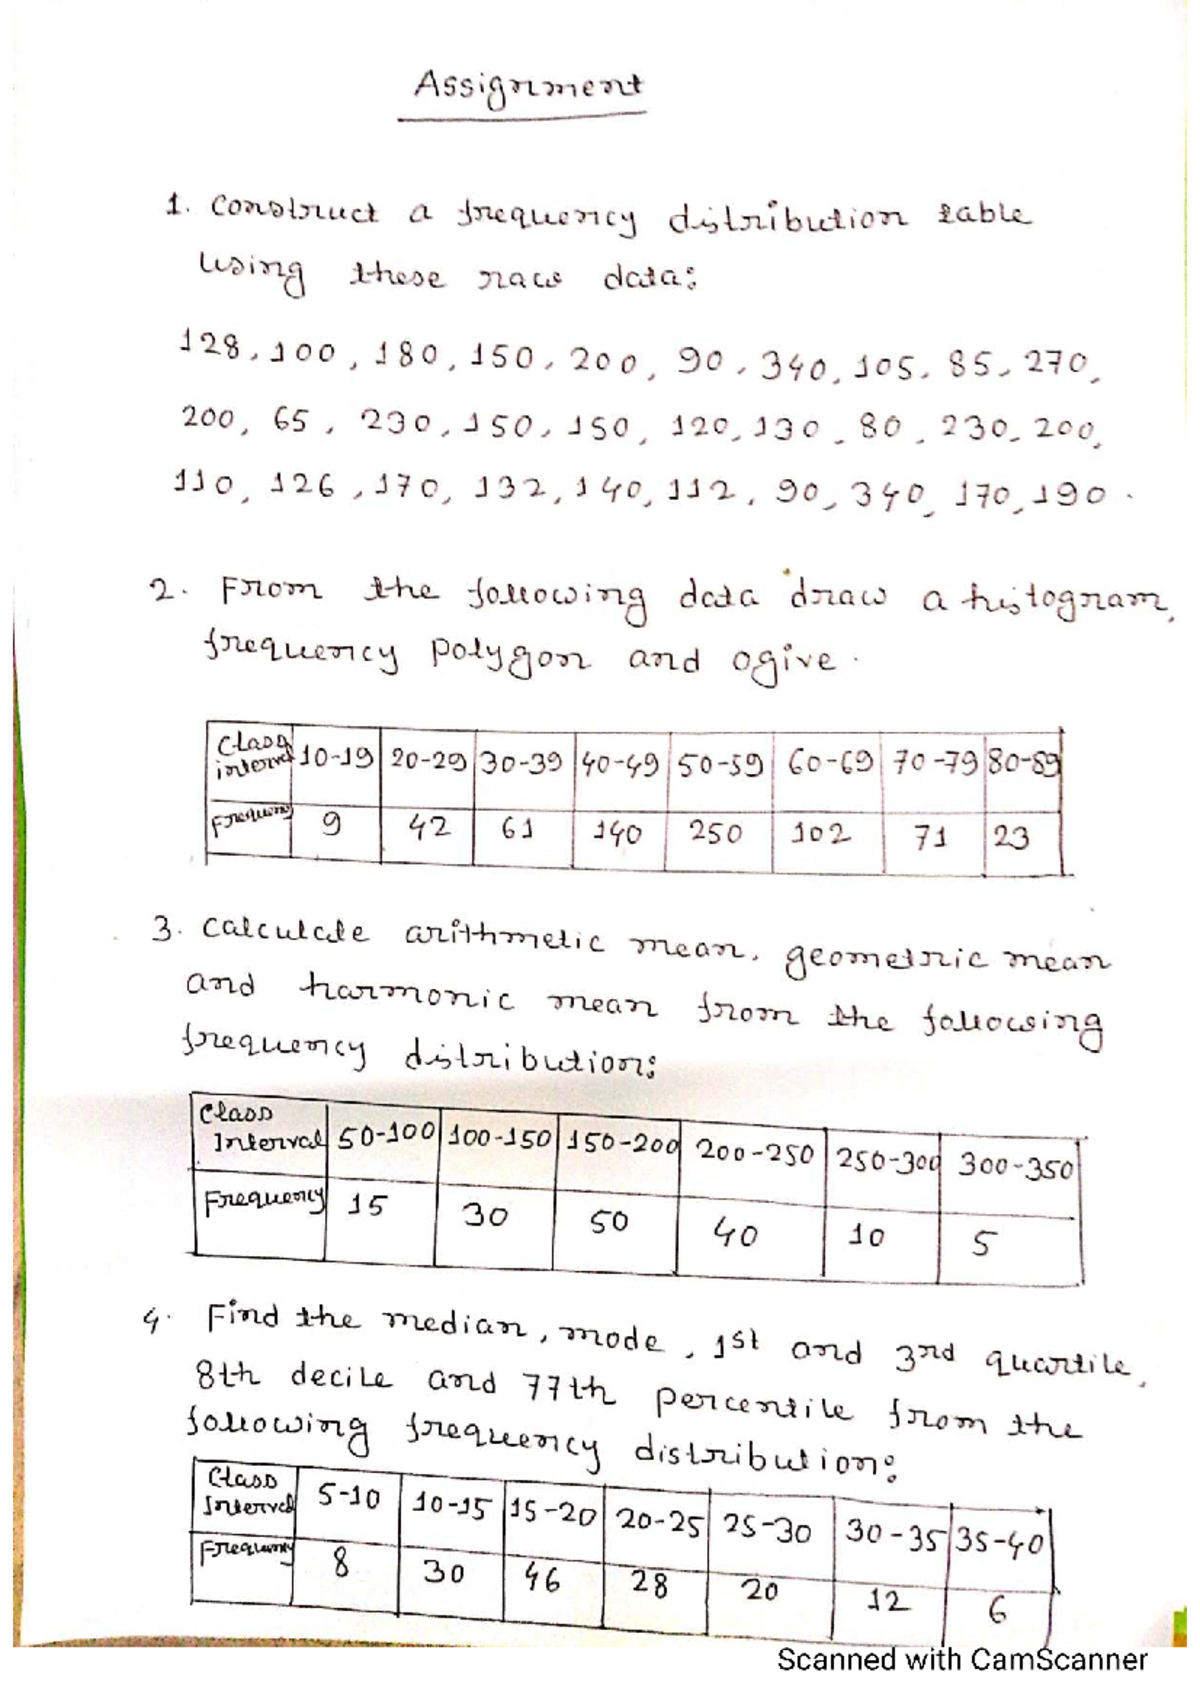 Assignment
1. Construct a frequency distribution table
using these raw data:
128, 100, 180, 150, 200, 90, 340, 105, 85, 270,
200, 65, 230, 150, 150, 120, 130, 80, 230, 200,
110, 126, 170, 132, 140, 112, 90, 340, 170, 190.
2. From the following data draw a histogram,
frequency polygon and ogive.
Class interval 10-19 20-29 30-39 40-49 50-59 60-69 70-79 80-89
Frequency 9 42 61 140 250 102 71 23
3. Calculate arithmetic mean, geometric mean
and harmonic mean from the following
frequency distribution:
Class Interval 50-100 100-150 150-200 200-250 250-300 300-350
Frequency 15 30 50 40 10 5
4. Find the median, mode, 1st and 3rd quartile,
8th decile and 77th percentile from the
following frequency distribution:
Class Interval 5-10 10-15 15-20 20-25 25-30 30-35 35-40
Frequency 8 30 46 28 20 12 6
Scanned with CamScanner